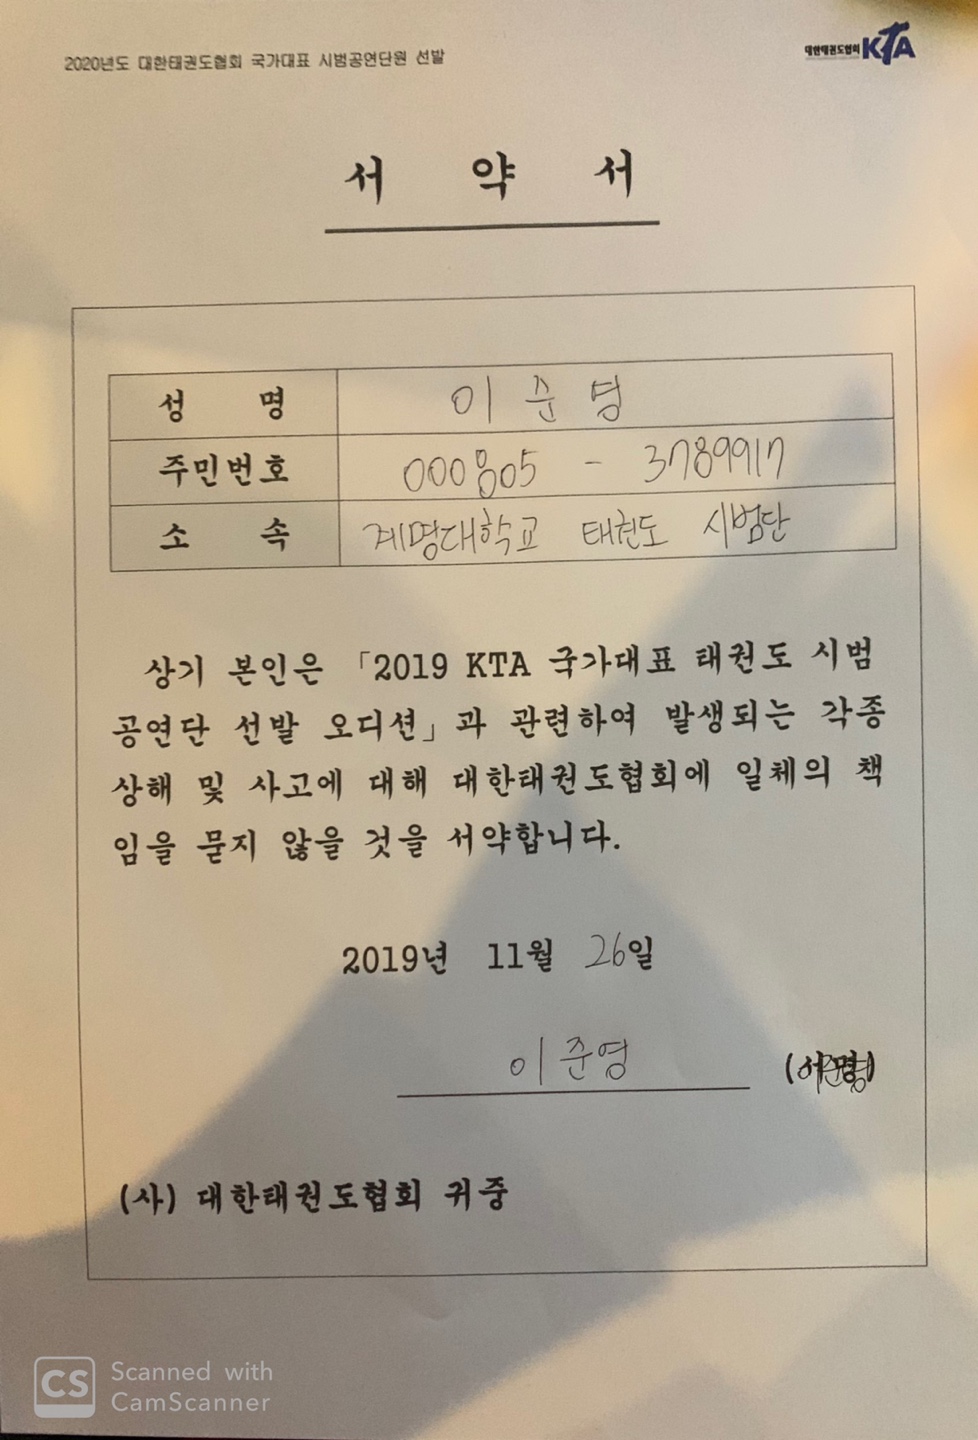 2020년도 대한태권도협회 국가대표 시범공연단원 선발
대한태권도협회 KTA
서 약 서
성 명 이준영
주민번호 000805 - 3789917
소 속 계명대학교 태권도 시범단
상기 본인은 「2019 KTA 국가대표 태권도 시범
공연단 선발 오디션」과 관련하여 발생되는 각종
상해 및 사고에 대해 대한태권도협회에 일체의 책
임을 묻지 않을 것을 서약합니다.
2019년 11월 26일
이준영 (서명)
(사) 대한태권도협회 귀중
CS Scanned with
CamScanner